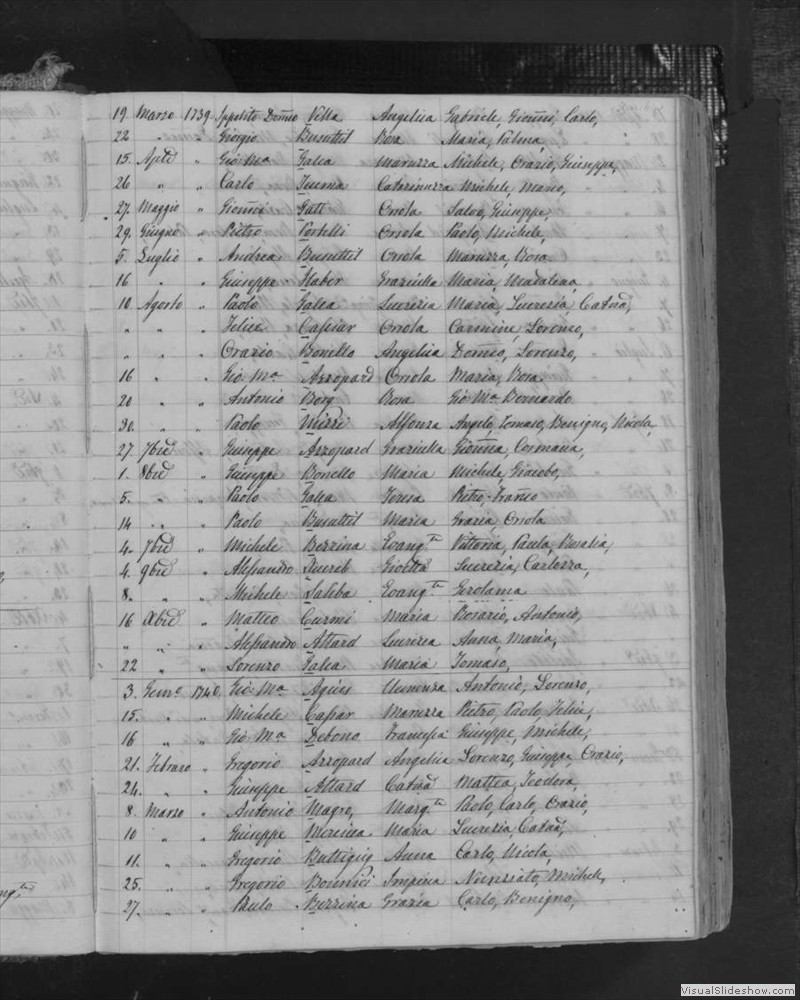 19. Marzo 1739. Ippolito Dom̃co Vella Angelica Gabriele, Gioñni, Carlo,
22 " " Giorgio Busuttil Rosa Maria, Palma,
15. Aple " Gio Ma Galea Maruzza Michele, Orazio, Giuseppe,
26 " " Carlo Catarinuzza Michele, Mario,
27. Maggio " Gioñni Gatt Orsola Salvo, Giuseppe,
29. Giugno " Pietro Portelli Orsola Paolo, Michele,
5. Luglio " Andrea Busuttil Orsola Maruzza, Rosa
16 " " Giuseppe Haber Graziulla Maria, Madalena,
10. Agosto " Paolo Galea Lucrezia Maria, Lucrezia, Catña,
" " " Felice Cassar Orsola Carmine, Lorenzo,
" " " Orazio Bonello Angelica Dom̃co, Lorenzo,
16 " " Gio. Ma Azzopard Orsola Maria, Rosa.
20 " " Antonio Borg Rosa Gio Ma Bernardo
30. " " Paolo Mizzi Alfonza Angelo, Tomaso, Benigno, Nicola,
27. 7bre " Giuseppe Azzopard Graziulla Gioñna, Cosmana,
1. 8bre " Giuseppe Bonello Maria Michele, Giacobo,
5. " " Paolo Galea Teresa Pietro, Franco
14 " " Paolo Busuttil Maria Grazia, Orsola
4. 7bre " Michele Bezzina Evangta Vittoria, Paula, Rosalia,
4. 9bre " Alessandro Lucrezia, Carlozza,
8. " " Michele Saliba Evangta Gerolama
16 Xbre " Matteo Curmi Maria Rosario, Antonio,
" " " Alessandro Attard Lucrezia Anna, Maria,
22 " " Lorenzo Galea Maria Tomaso,
3. Genro 1740. Gio. Ma Agius Clemenza Antonio, Lorenzo,
15. " " Michele Cassar Maruzza Pietro, Paolo, Felice,
16 " " Gio. Ma Debono Francesca Giuseppe, Michele,
21. Febraro " Gregorio Azzopard Angelica Lorenzo, Giuseppe, Orazio,
24. " " Giuseppe Attard Catña Mattea, Teodora,
8. Marzo " Antonio Magro, Margta Paolo, Carlo, Orazio,
10 " " Giuseppe Mercieca Maria Lucrezia, Catña,
11. " " Gregorio Buttigieg Anna Carlo, Nicola,
25. " " Gregorio Bonnici Impina Nunziato, Michele,
27. " " Paulo Bezzina Grazia Carlo, Benigno,
VisualSlideshow.com